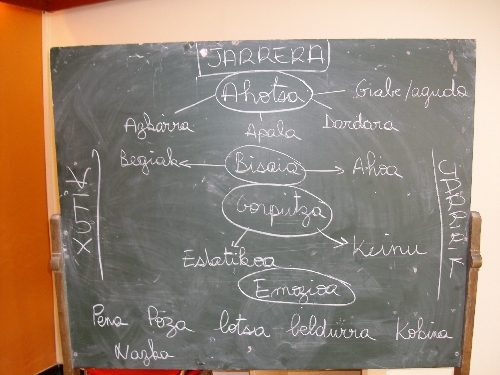 JARRERA
Ahotsa
Grabe/aguda
Azkarra
Apala
Dardara
Begiak
Bisaia
Ahoa
Gorputza
XUTIK
JARRIRIK
Estatikoa
Keinu
Emozioa
Pena Poza lotsa beldurra
Nazka